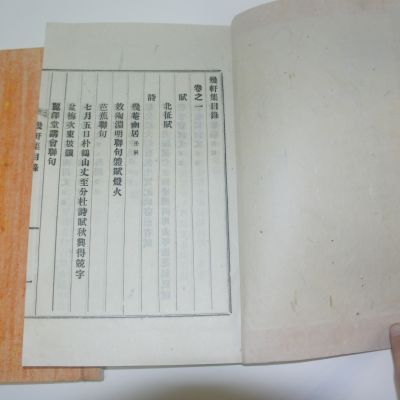 幾軒集目錄
卷之一
賦
北征賦
詩
幾菴幽居
效陶淵明聯句體賦燈火
芭蕉聯句
七月五日朴鶴山丈至分杜詩賦秋興得競字
盆梅次東坡韻
麗澤堂講會聯句
幾軒集目錄
一